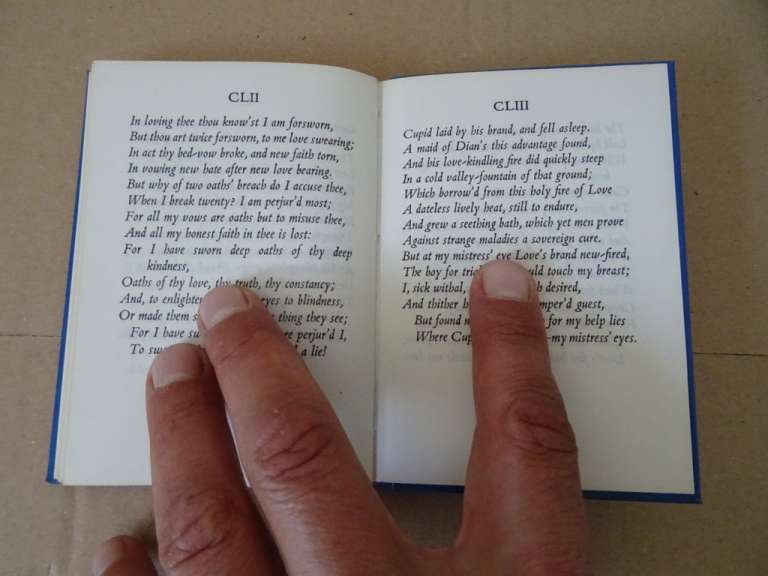 CLII
In loving thee thou know'st I am forsworn,
But thou art twice forsworn, to me love swearing;
In act thy bed-vow broke, and new faith torn,
In vowing new hate after new love bearing.
But why of two oaths' breach do I accuse thee,
When I break twenty? I am perjur'd most;
For all my vows are oaths but to misuse thee,
And all my honest faith in thee is lost:
For I have sworn deep oaths of thy deep
kindness,
Oaths of thy love, thy truth, thy constancy;
And, to enlighten eyes to blindness,
Or made them thing they see;
For I have perjur'd I,
To a lie!
CLIII
Cupid laid by his brand, and fell asleep.
A maid of Dian's this advantage found,
And his love-kindling fire did quickly steep
In a cold valley-fountain of that ground;
Which borrow'd from this holy fire of Love
A dateless lively heat, still to endure,
And grew a seething bath, which yet men prove
Against strange maladies a sovereign cure.
But at my mistress' eye Love's brand new-fired,
The boy for touch my breast;
I, sick withal, desired,
And thither guest,
But found for my help lies
Where my mistress' eyes.